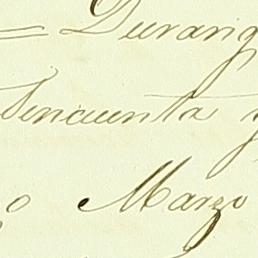 = Durang
Sencuenta y
o Marzo